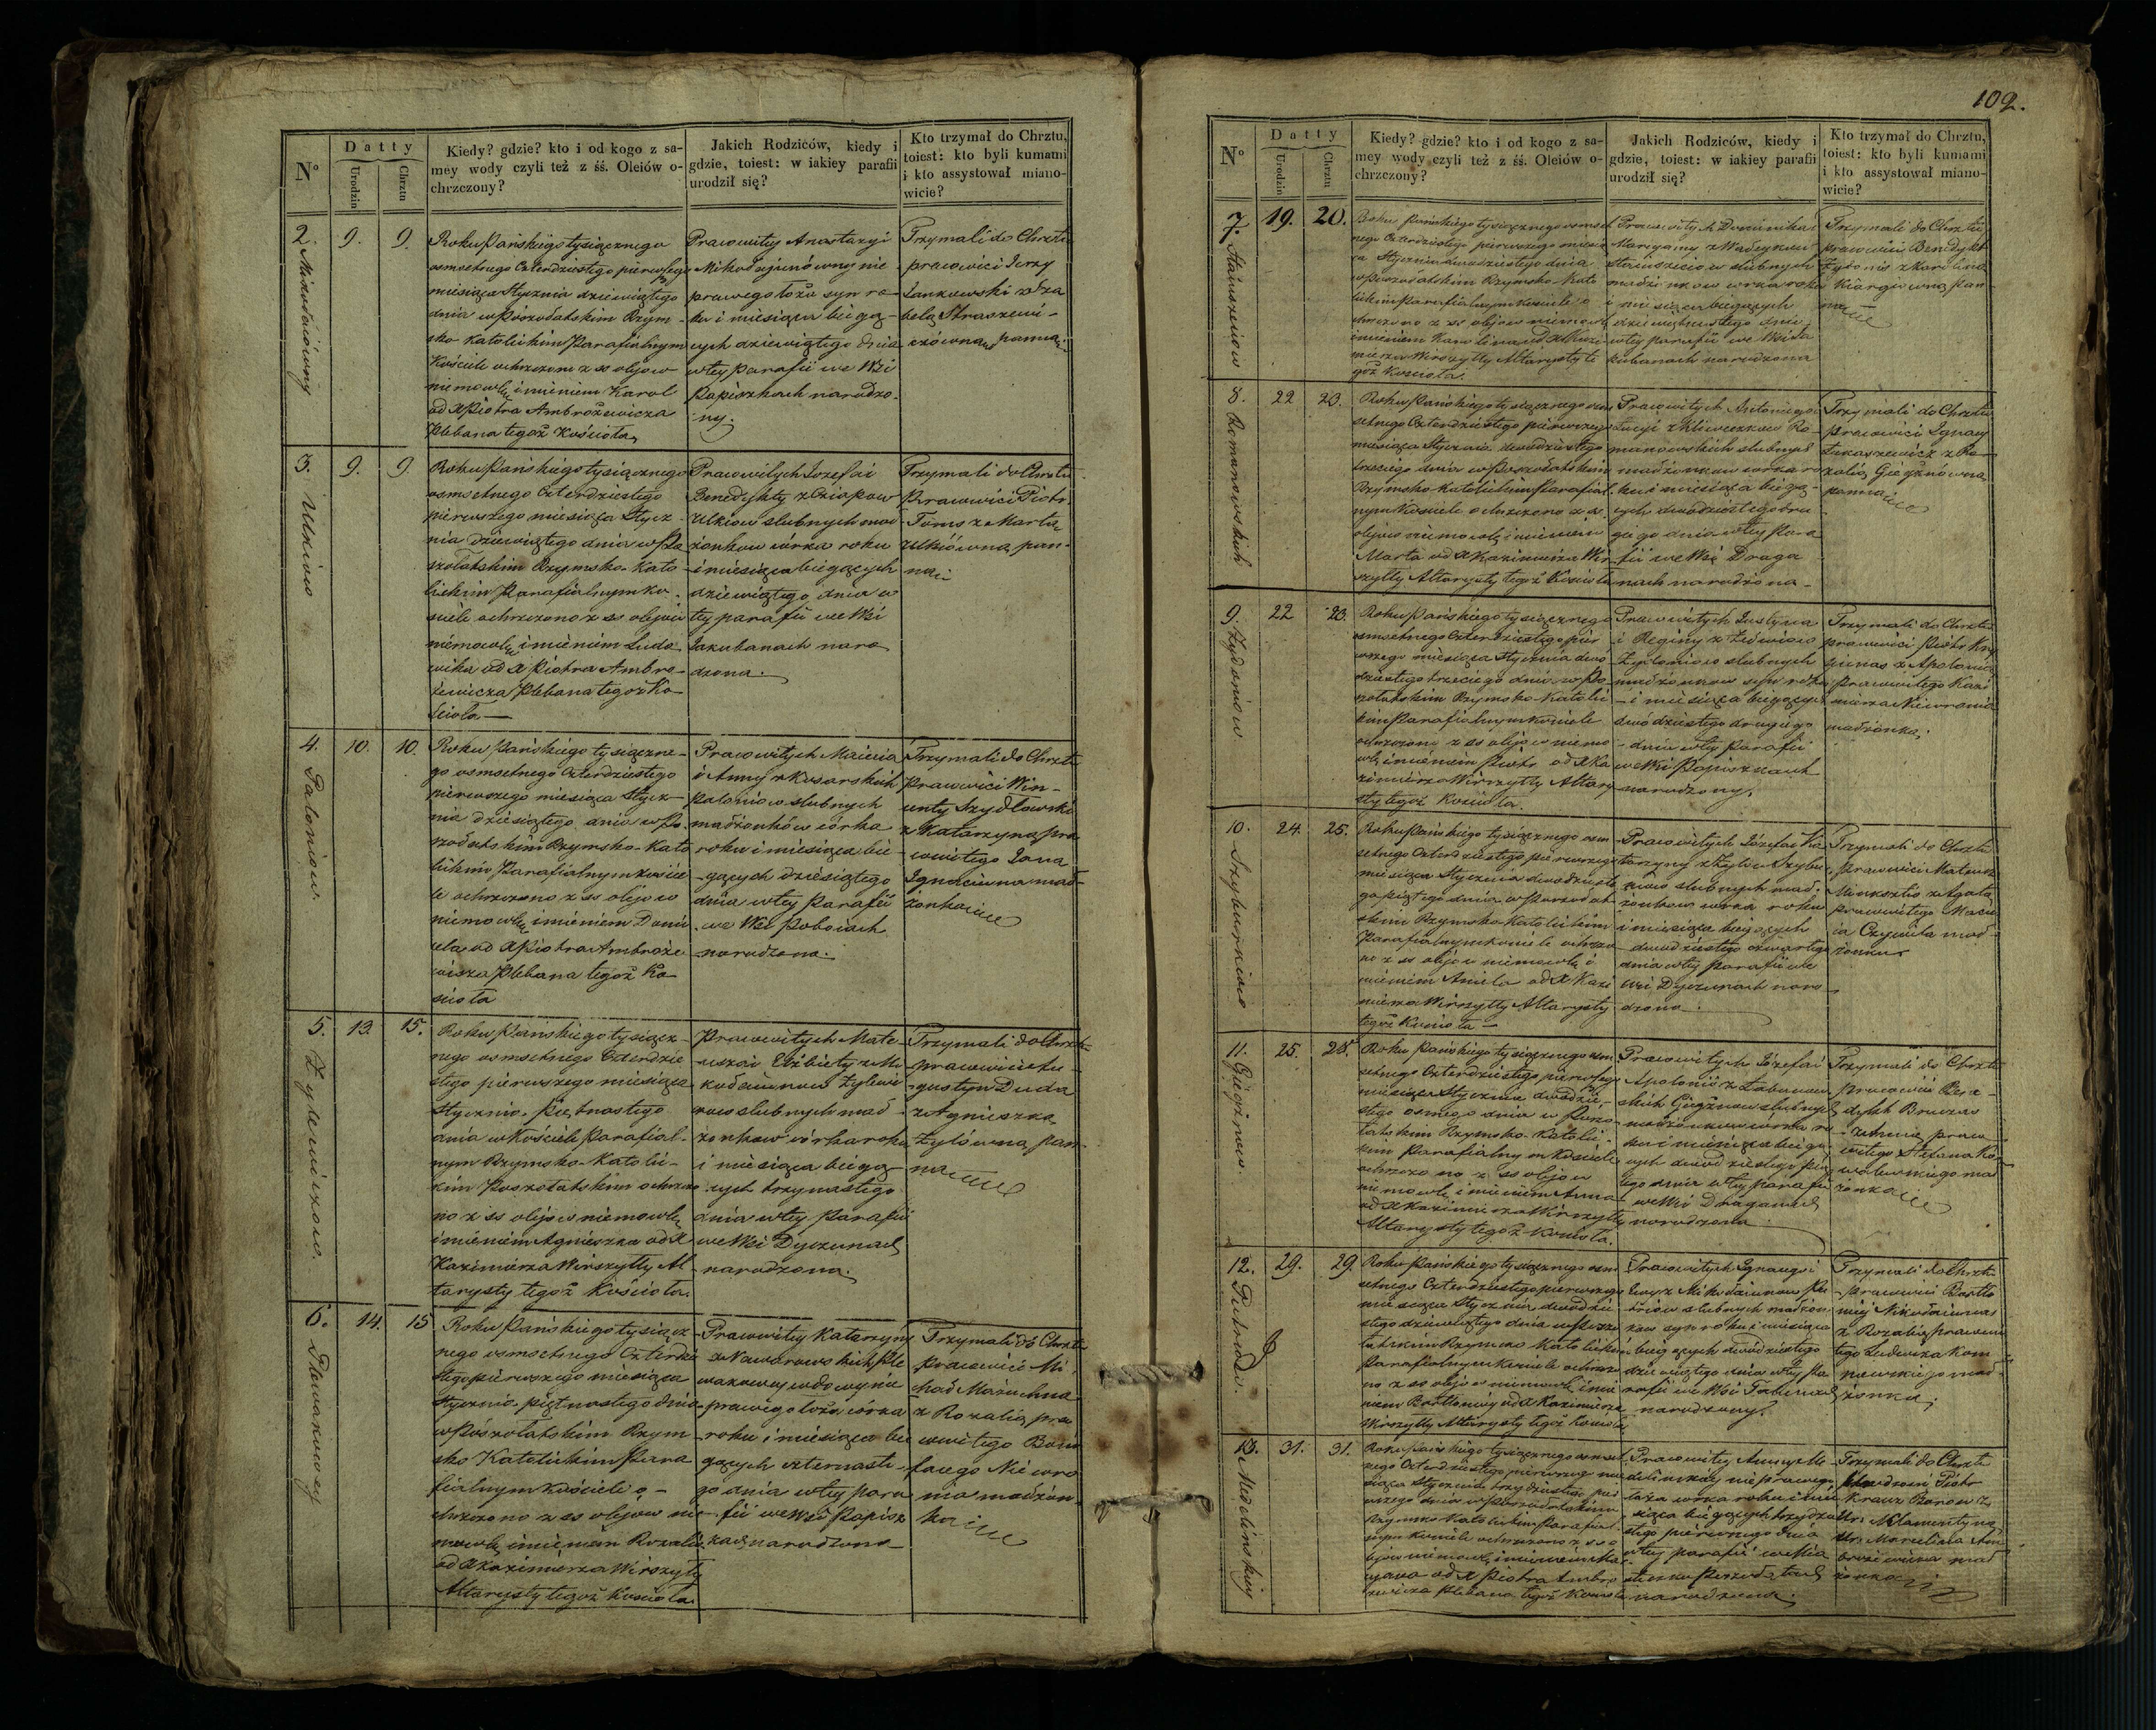 102.
N°
Datty
Urodzin
Chrztu
Kiedy? gdzie? kto i od kogo z sa-
mey wody czyli też z śś. Oleiów o-
chrzczony?
Jakich Rodziców, kiedy i
gdzie, toiest: w iakiey parafii
urodził się?
Kto trzymał do Chrztu,
toiest: kto byli kumami
i kto assystował miano-
wicie?
2. 9. 9.
Roku Pańskiego tysiącznego
osmsetnego Czterdziestego pierwszego
miesiąca Stycznia dziewiątego
dnia w Poszołatskim Rzym-
sko Katolickim Parafialnym
Kościele ochrzczono z ss olejow
niemowlę imieniem Karol
od X Piotra Ambrożewicza
Plebana tegoż Kościoła
Pracowitey Anastazyi
Mikołajunówny nie
prawego łoża syn ro-
ku i miesiąca bieżą-
cych dziewiątego dnia
w tey parafii we Wsi
Papiszkach narodzo-
ny.
Trzymali do Chrztu
pracowici Jerzy
Jankowski z Iza
belą Straszewi-
czówną panną
3. Ulkiow 9. 9.
Roku Pańskiego tysiącznego
osmsetnego Czterdziestego
pierwszego miesiąca Stycz-
nia dziewiątego dnia w Po
szołatskim Rzymsko-Kato
lickim Parafialnym Ko-
ściele ochrzczono z ss olejow
niemowlę imieniem Ludo
wika od X Piotra Ambro-
żewicza Plebana tegoż Ko-
ścioła
Pracowitych Jozefa i
Benedykty z Osiapow
Ulkiow slubnych mał
żonkow córka roku
i miesiąca bieżących
dziewiątego dnia w
tey parafii we Wsi
Jakubanach naro
dzona.
Trzymali do Chrztu
Pracowici Piotr
Toms z Martą
Ulkiówną pan-
ną
4. Patoniow. 10. 10.
Roku Pańskiego tysiączne-
go osmsetnego Czterdziestego
pierwszego miesiąca Stycz-
nia dziesiątego dnia w Po-
szołatskim Rzymsko-Kato
lickim Parafialnym Koście
le ochrzczono z ss olejow
niemowlę imieniem Dani
ela od X Piotra Ambroże
wicza Plebana tegoż Ko-
ścioła
Pracowitych Macieia
i Anny z Kosarskich
Patoniow slubnych
małżonków córka
roku i miesiąca bie
-żących dziesiątego
dnia w tey Parafii
we Wsi Poboiach
narodzona.
Trzymali do Chrztu
Pracowici Win-
centy Szydłowski
z Katarzyną pra
cowitego Jana
Ignaciuna mał-
żonką
5. Zylewiczow. 13. 15.
Roku Pańskiego tysiącz-
nego osmsetnego Czterdzie
stego pierwszego miesiąca
Stycznia piętnastego
dnia w Kościele Parafial-
nym Rzymsko-Katolic-
kim Poszołatskim ochrzczo
no z ss olejow niemowlę
imieniem Agnieszka od X
Kazimierza Wirszyłły Al
tarysty tegoż Kościoła.
Pracowitych Mate-
usza i Elżbiety z Mi
kołaiunow Żylewi
czow slubnych mał
żonkow córka roku
i miesiąca bieżą-
cych trzynastego
dnia w tey Parafii
we Wsi Dyczunach
narodzona.
Trzymali do Chrztu
pracowici Au-
gustyn Duda
z Agnieszką
Żyłówną pan-
ną
6. 14. 15
Roku Pańskiego tysiącz
nego osmsetnego Czterdzie
stego pierwszego miesiąca
Stycznia piętnastego dnia
w Poszołatskim Rzym-
sko Katolickim Para
fialnym Kościele o-
chrzczono z ss olejow nie
mowlę imieniem Rozalia
od X Kazimierza Wirszyłły
Altarysty tegoż Kościoła.
Pracowitey Katarzyny
z Naworowskich Ple
wakowey wdowy nie
prawego łoża córka
roku i miesiąca bie
żących czternaste-
go dnia w tey para
fii we Wsi Papisz
kach narodzona
Trzymali do Chrztu
Pracowici Mi
chał Mażuchna
z Rozalią pra
cowitego Boni
facego Niewro
nia małżon-
ką
N°
Datty
Urodzin
Chrztu
Kiedy? gdzie? kto i od kogo z sa-
mey wody czyli też z śś. Oleiów o-
chrzczony?
Jakich Rodziców, kiedy i
gdzie, toiest: w iakiey parafii
urodził się?
Kto trzymał do Chrztu,
toiest: kto byli kumami
i kto assystował miano-
wicie?
7. 19. 20.
Roku Pańskiego tysiącznego osmset
nego Czterdziestego pierwszego miesią
ca Stycznia dwudziestego dnia
w Poszołatskim Rzymsko Kato
lickim Parafialnym Kościele o
chrzczono z ss olejow niemowlę
imieniem Karolina od X Kazi
mierza Wirszyłły Altarysty te
goż Kościoła.
Pracowitych Dominika i
Maryanny
slubnych
małżonkow corka roku
i miesiąca bieżących
dziewiętnastego dnia
w tey parafii we Wsi Ja
kubanach narodzona
Trzymali do Chrztu
pracowici Benedykt
z Karoliną
pan-
ną
8. Romanowskich 22 23.
Roku Pańskiego tysiącznego osm
setnego Czterdziestego pierwszego
miesiąca Stycznia dwudziestego
trzeciego dnia w Poszołatskim
Rzymsko-Katolickim Parafial
nym Kościele ochrzczono z ss
olejow niemowlę imieniem
Marta od X Kazimierza Wir
szyłły Altarysty tegoż Kościoła
Pracowitych Antoniego i
Lucyi z Klewczkow Ro-
manowskich slubnych
małżonkow corka ro
ku i miesiąca bieżą-
cych dwudziestego dru
giego dnia w tey Para
fii we Wsi Draga
nach narodzona.
Trzymali do Chrztu
pracowici Ignacy
Łukaszewicz z Ro
zalią Giegżnówną
panną
9. 22 23.
Roku Pańskiego tysiącznego
osmsetnego Czterdziestego pier
wszego miesiąca Stycznia dwu
dziestego trzeciego dnia w Po
szołatskim Rzymsko-Katolic
kim Parafialnym Kościele
ochrzczono z ss olejow niemo
wlę imieniem Piotr od X Ka
zimierza Wirszyłły Altary
sty tegoż Kościoła.
Pracowitych Justyna
i Reginy z
slubnych
małżonkow syn roku
i miesiąca bieżących
dwudziestego drugiego
dnia w tey Parafii
we Wsi Papiszkach
narodzony.
Trzymali do Chrztu
pracowici Piotr
z Apolonią
pracowitego Kazi
mierza Niewronia
małżonką
10. 24. 25.
Roku Pańskiego tysiącznego osm
setnego Czterdziestego pierwszego
miesiąca Stycznia dwudzieste
go piątego dnia w Poszołat-
skim Rzymsko-Katolickim
Parafialnym Kościele ochrzczo
no z ss olejow niemowlę i
mieniem Aniela od X Kazi
mierza Wirszyłły Altarysty
tegoż Kościoła
Pracowitych Józefa i Ka
tarzyny z
slubnych mał-
żonkow corka roku
i miesiąca bieżących
dwudziestego czwartego
dnia w tey parafii we
Wsi Dyczunach naro
dzona.
Trzymali do Chrztu
Pracowici Mateusz
z Agatą
pracowitego Macie
ia mał-
żonką
11. Giegżnow. 25. 28.
Roku Pańskiego tysiącznego osm
setnego Czterdziestego pierwszego
miesiąca Stycznia dwudzie-
stego osmego dnia w Poszo
łatskim Rzymsko-Katolic
kim Parafialnym Kościele
ochrzczono z ss olejow
niemowlę imieniem Anna
od X Kazimierza Wirszyłły
Altarysty tegoż Kościoła.
Pracowitych Józefa i
Apolonii z Łabanow
skich Giegżnow slubnych
małżonkow corka ro
ku i miesiąca bieżą
cych dwudziestego pią
tego dnia w tey parafii
we Wsi Draganach
narodzona
Trzymali do Chrztu
Pracowici Bene-
dykt
z Anną praco
witego Stefana Ko
walewskiego mał
żonką
12. 29. 29.
Roku Pańskiego tysiącznego osm
setnego Czterdziestego pierwszego
miesiąca Stycznia dwudzie
stego dziewiątego dnia w Poszo
łatskim Rzymsko Katolickim
Parafialnym Kościele ochrzczo
no z ss olejow niemowlę imie
niem Bartłomiey od X Kazimierza
Wirszyłły Altarysty tegoż Kościoła
Pracowitych Ignacego i
Ewy z Mikołaiunow
slubnych małżon
kow syn roku i miesiąca
bieżących dwudziestego
dziewiątego dnia w tey Pa
rafii we Wsi
narodzony.
Trzymali do Chrztu
pracowici Bartło
miey Mikołaiunas
z Rozalią pracowi
tego Ludwika
mał-
żonką
13. Medelinskiey 31. 31.
Roku Pańskiego tysiącznego osmset
nego Czterdziestego pierwszego mie
siąca Stycznia trzydziestego pier
wszego dnia w Poszołatskim
Rzymsko Katolickim Parafial
nym Kościele ochrzczono z ss o
lejow niemowlę imieniem Ma-
ryana od X Piotra Ambro
żewicza Plebana tegoż Kościoła
Pracowitey Anny Me
delinskiey nieprawego
łoża corka roku i mie
siąca bieżących trzydzie
stego pierwszego dnia
w tey parafii w Mia
steczku Poszołatach
narodzona.
Trzymali do Chrztu
Piotr
z
Klamentyną
Marcelina Am
brożewicza mał
żonką